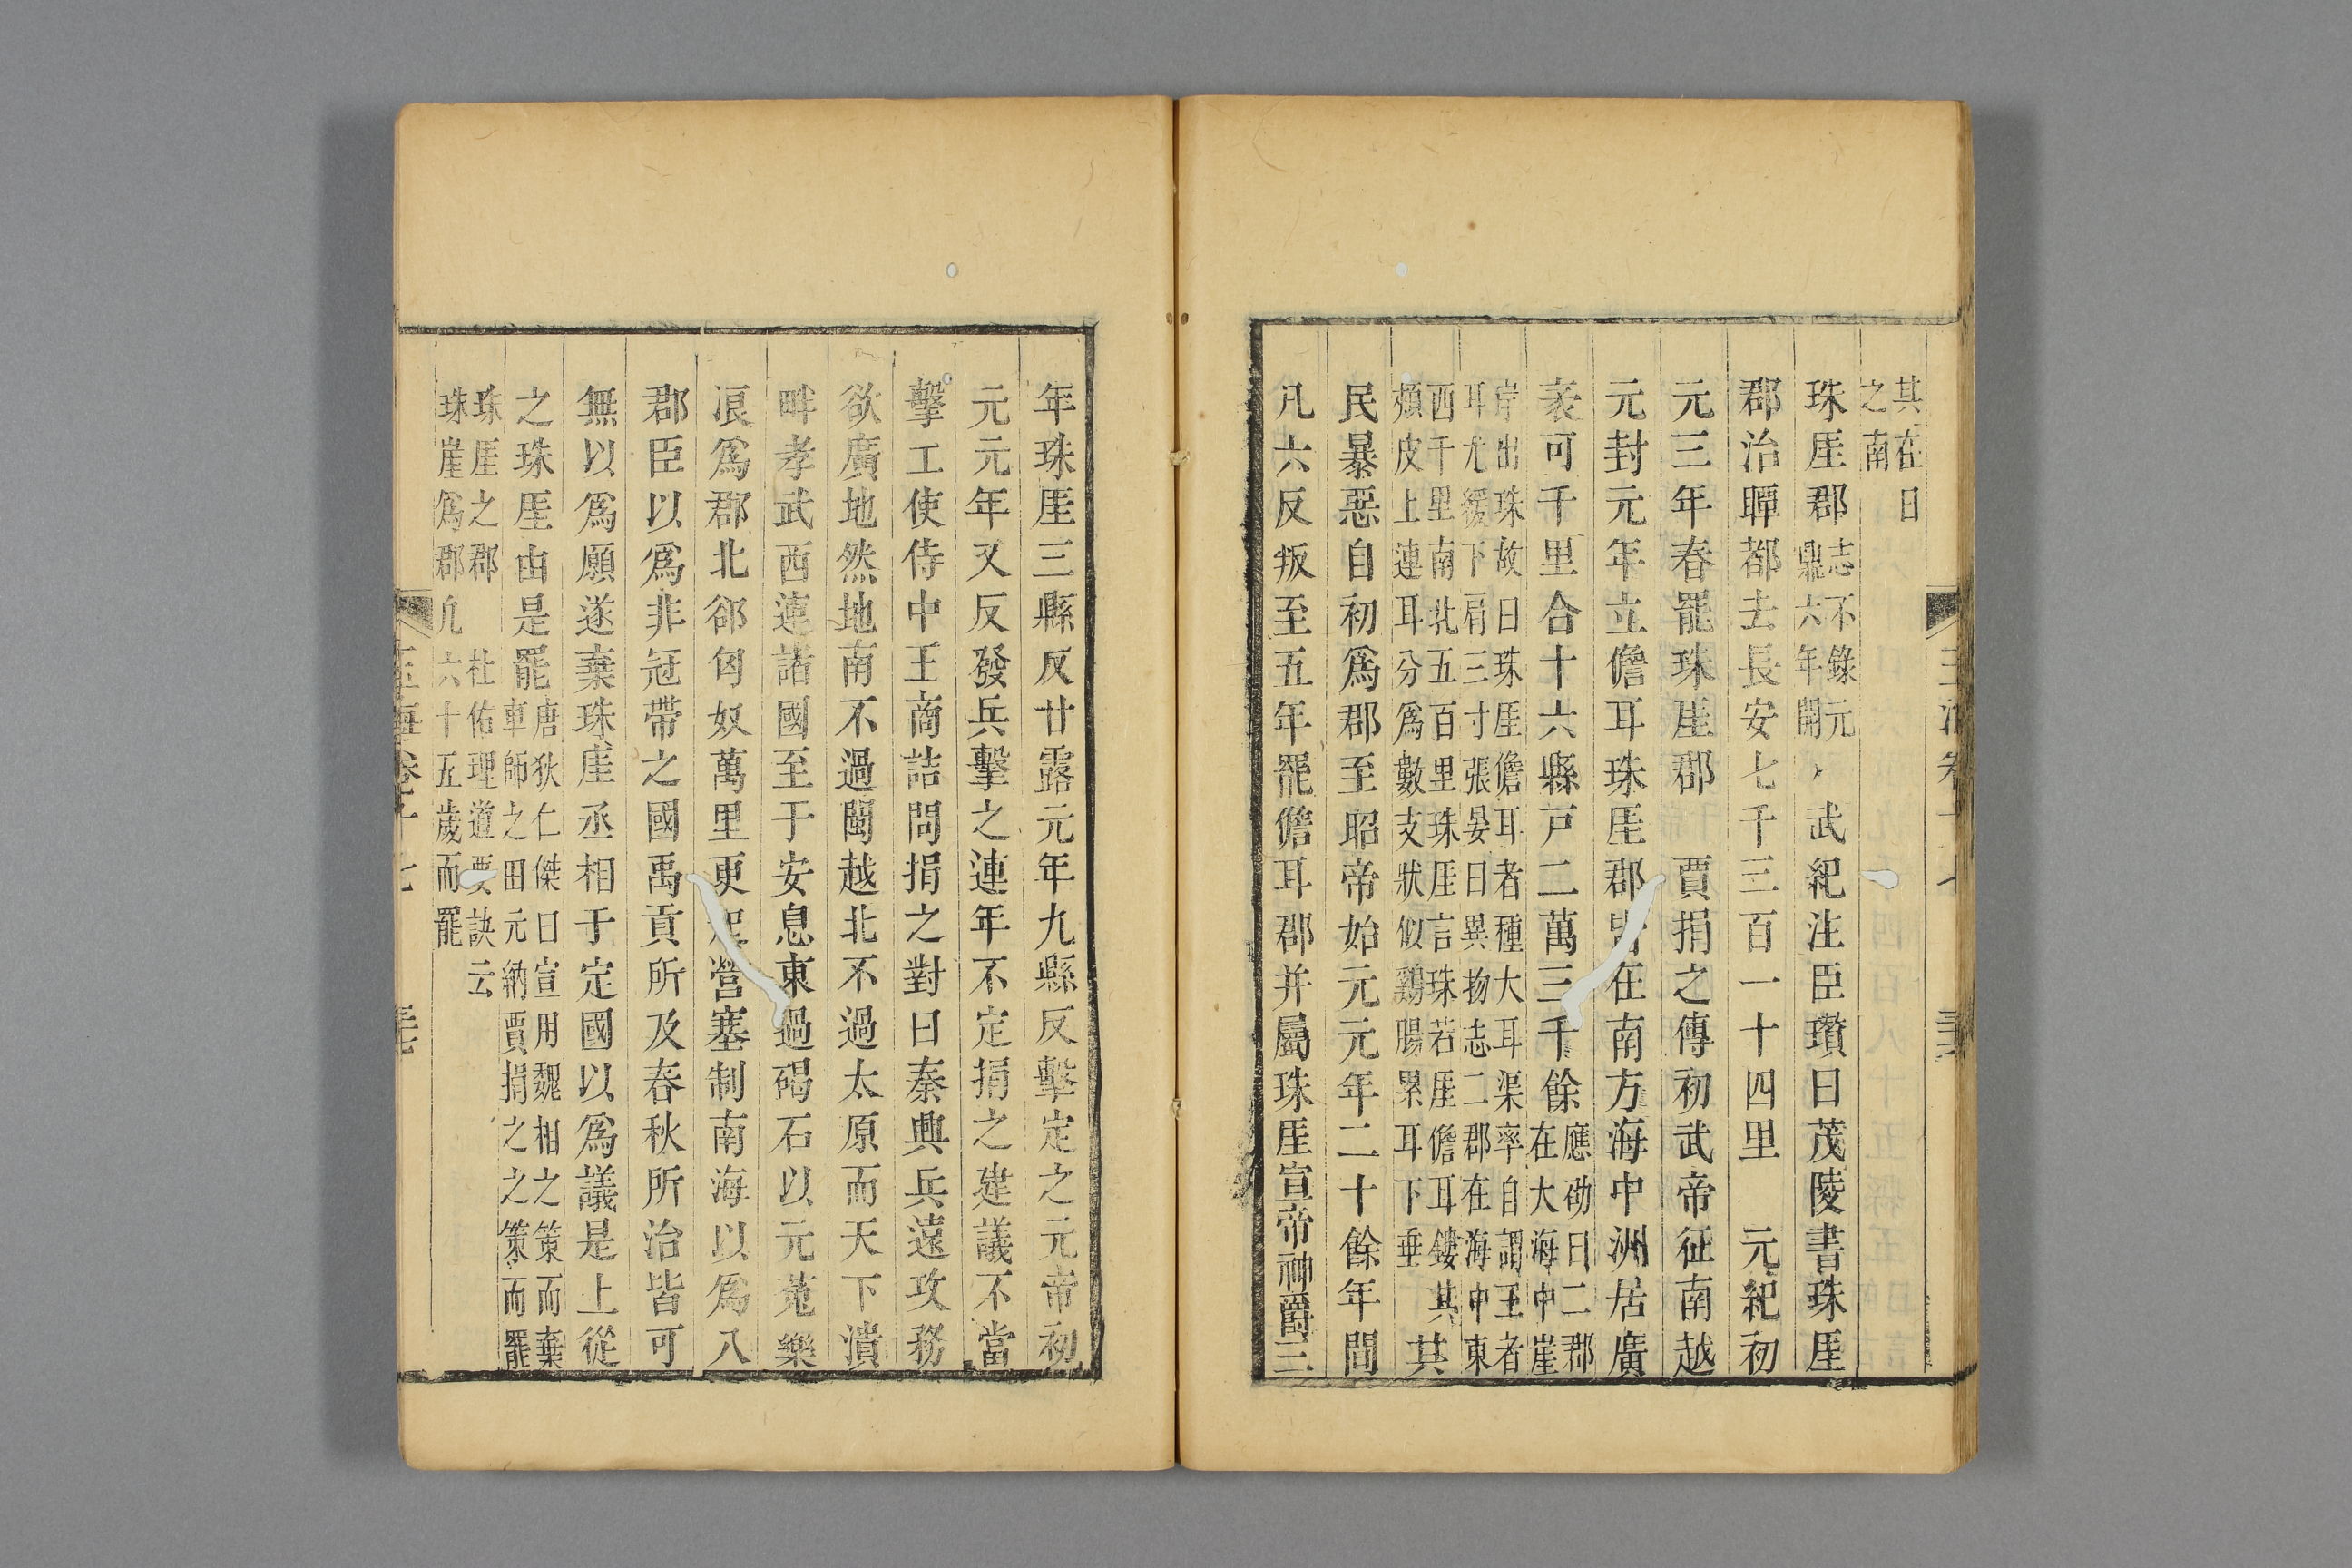 其在日
之南
珠厓郡志不錄元
鼎六年開武紀注臣瓚曰茂陵書珠厓
郡治瞫都去長安七千三百一十四里 元紀初
元三年春罷珠厓郡 賈捐之傳初武帝征南越
元封元年立儋耳珠厓郡皆在南方海中洲居廣
袤可千里合十六縣戸二萬三千餘應劭曰二郡
在大海中崖
岸出珠故曰珠厓儋耳者種大耳渠率自謂王者
耳尤緩下肩三寸張晏曰異物志二郡在海中東
西千里南北五百里珠厓言珠若厓儋耳鏤其
頰皮上連耳分爲數支狀似鷄腸累耳下垂其
民暴惡自初爲郡至昭帝始元元年二十餘年間
凡六反叛至五年罷儋耳郡并屬珠厓宣帝神爵三
年珠厓三縣反甘露元年九縣反擊定之元帝初
元元年又反發兵擊之連年不定捐之建議不當
擊上使侍中王商詰問捐之對曰秦興兵遠攻務
欲廣地然地南不過閩越北不過太原而天下潰
畔孝武西連諸國至于安息東過碣石以元菟樂
浪爲郡北郤匈奴萬里更起營塞制南海以爲八
郡臣以爲非冠帶之國禹貢所及春秋所治皆可
無以爲願遂棄珠厓丞相于定國以爲議是上從
之珠厓由是罷唐狄仁傑曰宣用魏相之策而棄
車師之田元納賈捐之之策而罷
珠厓之郡 杜佑理道要訣云
珠崖爲郡凢六十五歲而罷
玉海卷十七